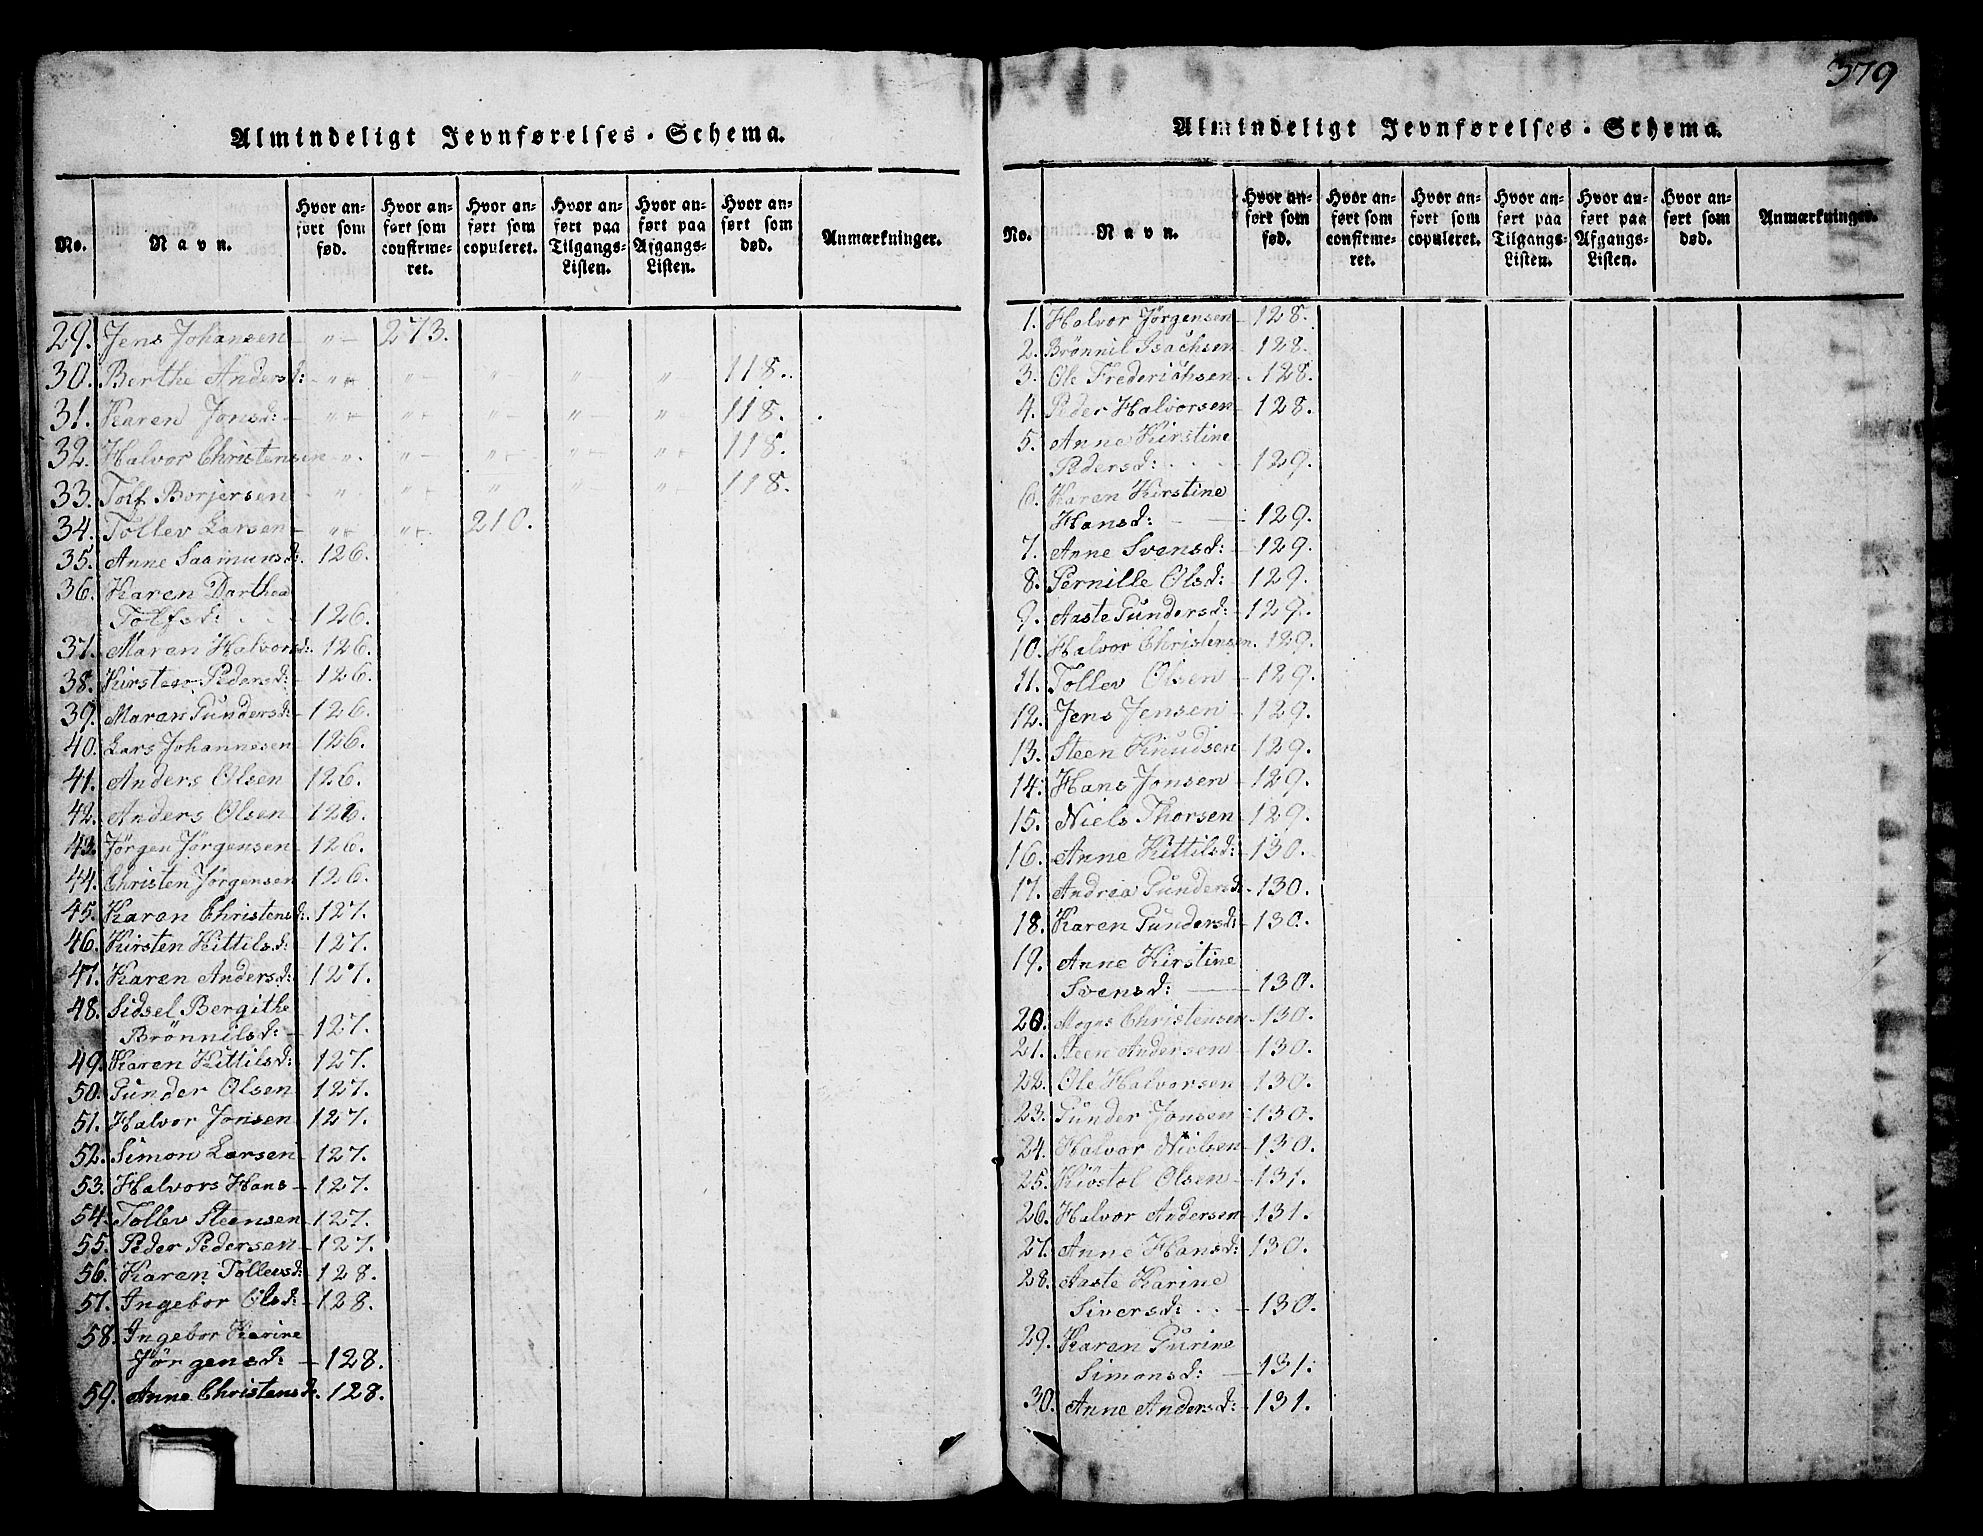 379
Almindeligt Jevnførelses-Schema.
No. Navn. Hvor anført som fød. Hvor anført som confirmeret. Hvor anført som copuleret. Hvor anført paa Tilgangs-Listen. Hvor anført paa Afgangs-Listen. Hvor anført som død. Anmærkninger.
29. Jens Johansen — „ — 273.
30. Berthe Andersd: „ „ „ „ „ 118.
31. Karen Jonsd: „ „ „ „ „ 118.
32. Halvor Christensen „ „ „ „ „ 118.
33. Tolf Borjersen „ „ „ „ „ 118.
34. Tollev Larsen — „ „ 210.
35. Anne Saamunsd: 126.
36. Karen Darthea
Tolfsd: . . 126.
37. Maren Halvorsd: 126.
38. Kirsten Pedersd: — 126.
39. Maren Gundersd: — 126.
40. Lars Johannesen — 126.
41. Anders Olsen 126.
42. Anders Olsen 126.
43. Jörgen Jörgensen — 126.
44. Christen Jörgensen 126.
45. Karen Christensd. 127.
46. Kirsten Kittilsd: 127.
47. Karen Andersd: 127.
48. Sidsel Bergithe
Brönnilsd: — 127.
49. Karen Kittilsd: 127.
50. Gunder Olsen 127.
51. Halvor Jonsen 127.
52. Simon Larsen — 127.
53. Halvors Hans — 127.
54. Tollev Steensen 127.
55. Peder Pedersen — 127.
56. Karen Tollevsd: 128.
57. Ingebor Olsd: — 128.
58. Ingebor Karine
Jörgensd: — 128.
59. Anne Christensd. 128.
Almindeligt Jevnførelses-Schema.
No. Navn. Hvor anført som fød. Hvor anført som confirmeret. Hvor anført som copuleret. Hvor anført paa Tilgangs-Listen. Hvor anført paa Afgangs-Listen. Hvor anført som død. Anmærkninger.
1. Halvor Jörgensen — 128.
2. Brönnil Isachsen — 128.
3. Ole Frederichsen . 128.
4. Peder Halvorsen — 128.
5. Anne Kirstine
Pedersd: . . . 129.
6. Karen Kirstine
Hansd: — 129.
7. Anne Svensd: — 129.
8. Pernille Olsd: 129.
9. Aaste Gundersd: — 129.
10. Halvor Christensen. 129.
11. Tollev Olsen — 129.
12. Jens Jensen — 129.
13. Steen Knudsen 129.
14. Hans Jonsen — 129.
15. Niels Thorsen 129.
16. Anne Kittilsd: — 130.
17. Andrea Gundersd. 130.
18. Karen Gundersd: — 130.
19. Anne Kirstine
Svensd: — 130.
20. Mogns Christensen — 130.
21. Steen Andersen — 130.
22. Ole Halvorsen — 130.
23. Gunder Jonsen 130.
24. Halvor Nielsen — 130.
25. Olsen — 131.
26. Halvor Andersen — 131.
27. Anne Hansd: 130.
28. Aaste Karine
Siversd: . . — 130.
29. Karen Gurine
Simonsd: — 131.
30. Anne Andersd: — 131.